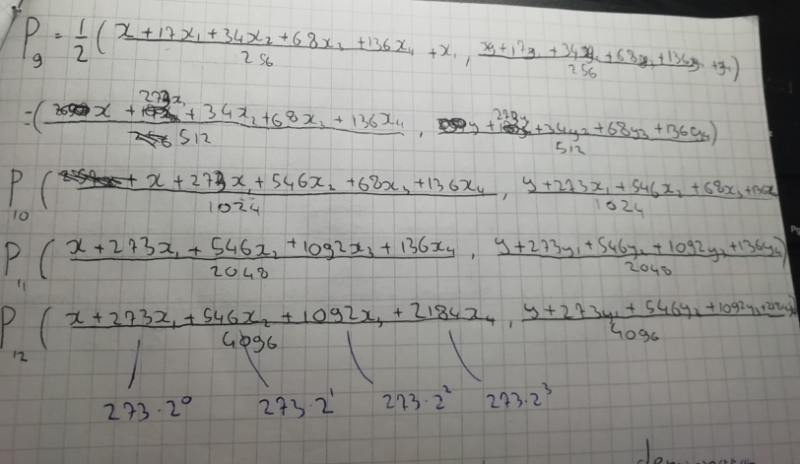 P₉ = 1/2 ( (x + 17x₁ + 34x₂ + 68x₃ + 136x₄)/256 + x₁ , (y + 17y₁ + 34y₂ + 68y₃ + 136y₄)/256 + y₁ )
= ( (x + 273x₁ + 34x₂ + 68x₃ + 136x₄)/512 , (y + 273y₁ + 34y₂ + 68y₃ + 136y₄)/512 )
P₁₀ ( (x + 273x₁ + 546x₂ + 68x₃ + 136x₄)/1024 , (y + 273x₁ + 546x₂ + 68x₃ + 136x)/1024
P₁₁ ( (x + 273x₁ + 546x₂ + 1092x₃ + 136x₄)/2048 , (y + 273y₁ + 546y₂ + 1092y₃ + 136y₄)/2048 )
P₁₂ ( (x + 273x₁ + 546x₂ + 1092x₃ + 2184x₄)/4096 , (y + 273y₁ + 546y₂ + 1092y₃ +)/4096
273·2⁰ 273·2¹ 273·2² 273·2³